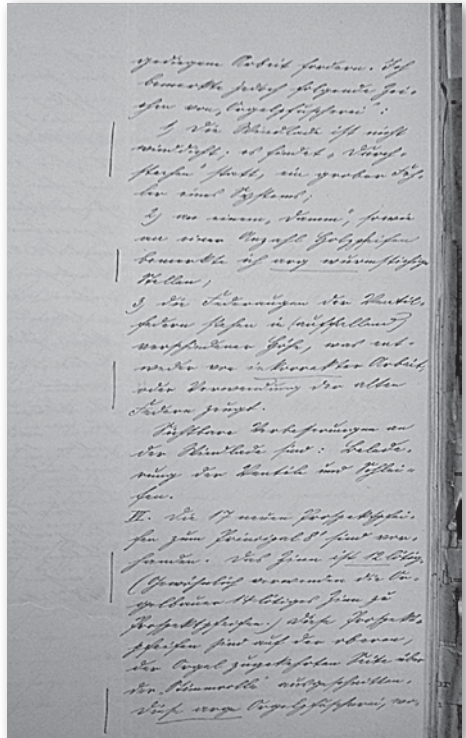 gediegene Arbeit fordern. Ich
bemerkte jedoch folgende Zei-
chen von „Orgelpfuscherei":
1) Die Windlade ist nicht
winddicht; es findet „Durch-
stechen" statt, ein grober Feh-
ler eines Systems;
2) an einem „Damm", sowie
an einer Anzahl Holzpfeifen
bemerkte ich arg wurmstichige
Stellen;
3) die Federaugen der Ventil-
federn stehen in (auffallend)
verschiedener Höhe, was ent-
weder von inkorrekter Arbeit,
oder Verwendung der alten
Federn zeugt.
Sichtbare Verbesserungen an
der Windlade sind: Belede-
rung der Ventile und Schlei-
fen.
IV. Die 17 neuen Prospektpfei-
fen zum Prinzipal 8' sind vor-
handen. Das Zinn ist 12lötig.
(Gewöhnlich verwenden die Or-
gelbauer 14lötiges Zinn zu
Prospektpfeifen.) Diese Prospekt-
pfeifen sind auf der oberen,
der Orgel zugekehrten Seite über
der „Stimmrolle" ausgeschnitten.
Diese arge Orgelpfuscherei, wo-